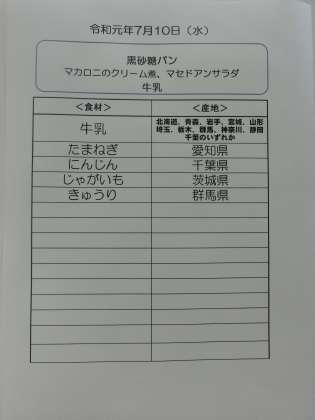 令和元年7月10日（水）
黒砂糖パン
マカロニのクリーム煮、マセドアンサラダ
牛乳
＜食材＞ ＜産地＞
牛乳 北海道、青森、岩手、宮城、山形
埼玉、栃木、群馬、神奈川、静岡
千葉のいずれか
たまねぎ 愛知県
にんじん 千葉県
じゃがいも 茨城県
きゅうり 群馬県